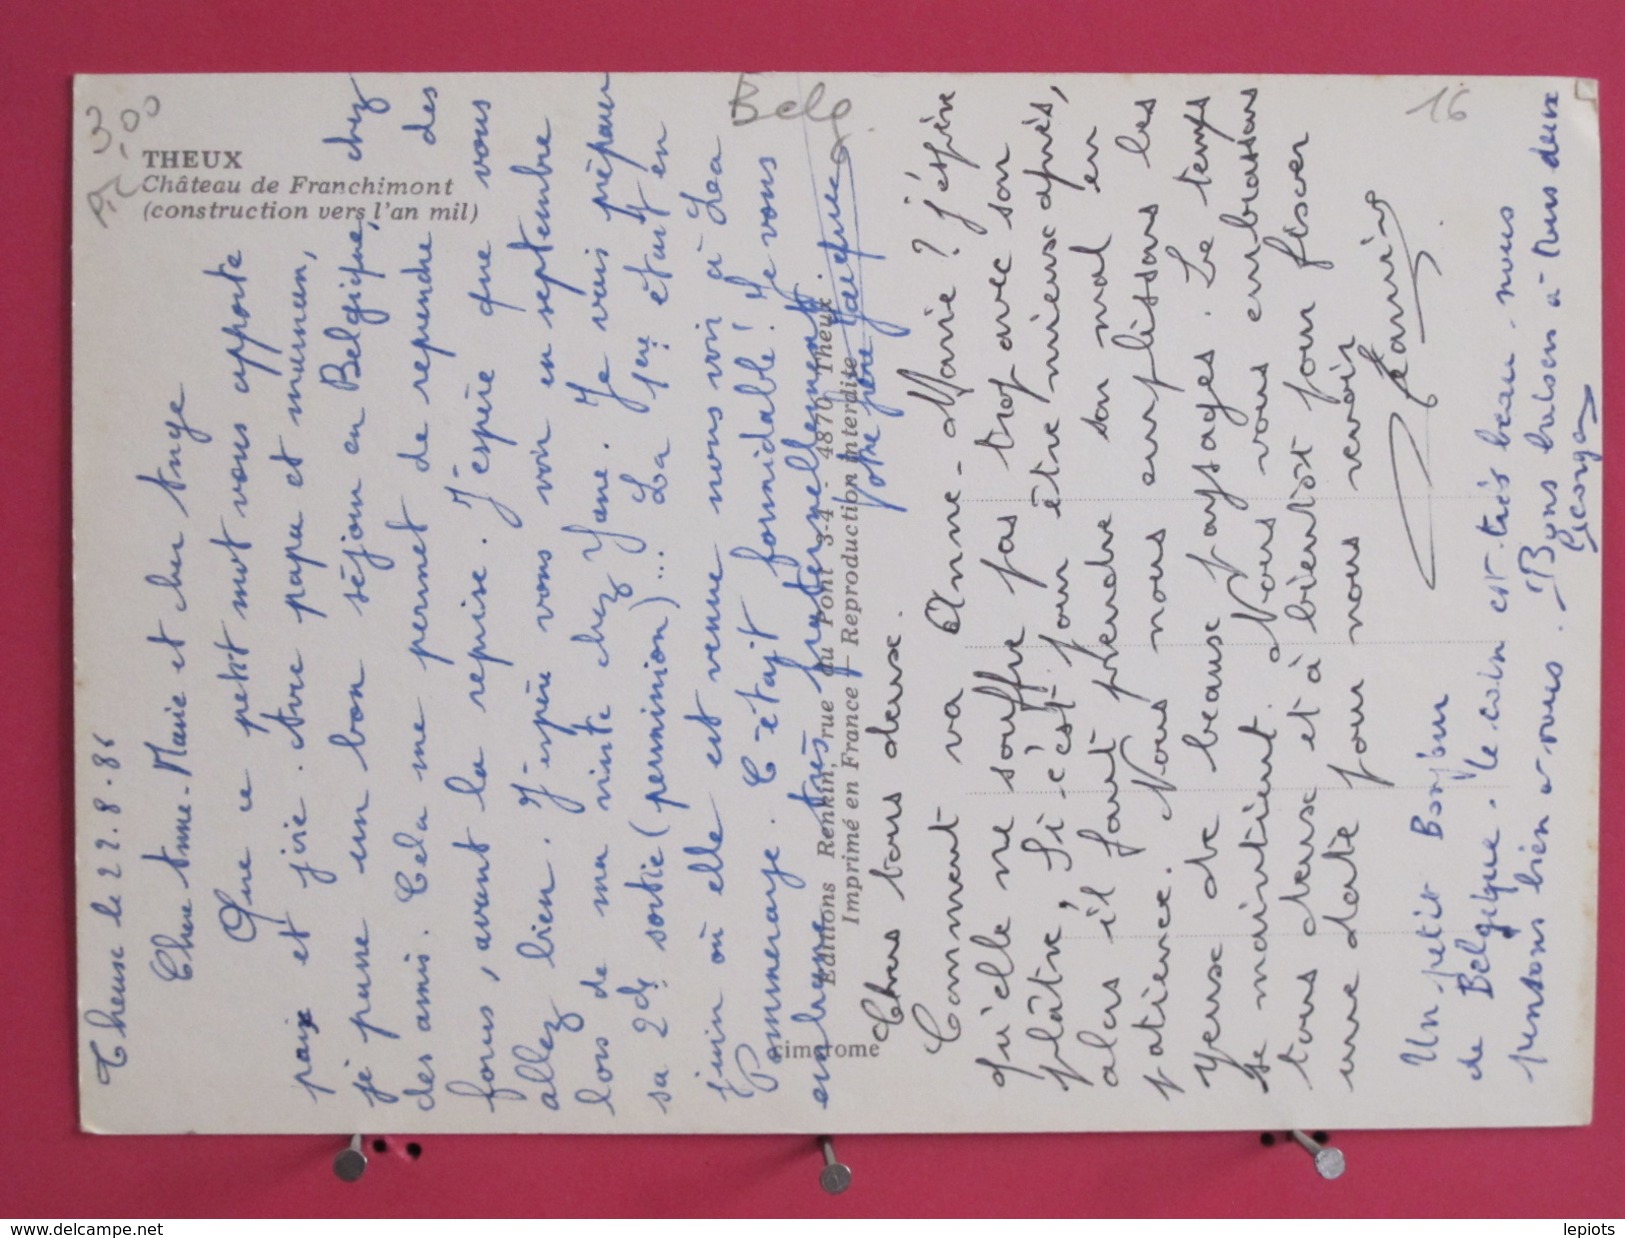 THEUX
Château de Franchimont
(construction vers l'an mil)
Editions Renkin, rue du Pont 3-4 - 4870 Theux
Imprimé en France — Reproduction interdite
16
3,00
Belg
Theux le 22.8.86
Chère Anne-Marie et cher Ange
Que ce petit mot vous apporte
paix et joie. Avec papa et maman,
je passe un bon séjour en Belgique, chez
des amis. Cela me permet de reprendre des
forces, avant la reprise. J'espère que vous
allez bien. J'espère vous voir en septembre
lors de ma visite chez Yane. Je vais préparer
sa 2de sortie (permission)... La 1ère étant en
juin où elle est venue nous voir à La
Pommeraye. C'était formidable! Je vous
embrasse très fraternellement.
votre frère Jacques.
Chers tous deux.
Comment va Anne-Marie? j'espère
qu'elle ne souffre pas trop avec son
plâtre, si c'est pour être mieux après,
alors il faut prendre son mal en
patience. Nous nous emplissons les
yeux de beaux paysages. Le temps
se maintient. Nous vous embrassons
tous deux et à bientôt pour fixer
une date pour nous revoir
Un petit Bonjour
de Belgique. le coin est très beau. nous
pensons bien à vous. Bons baisers à tous deux
Georges